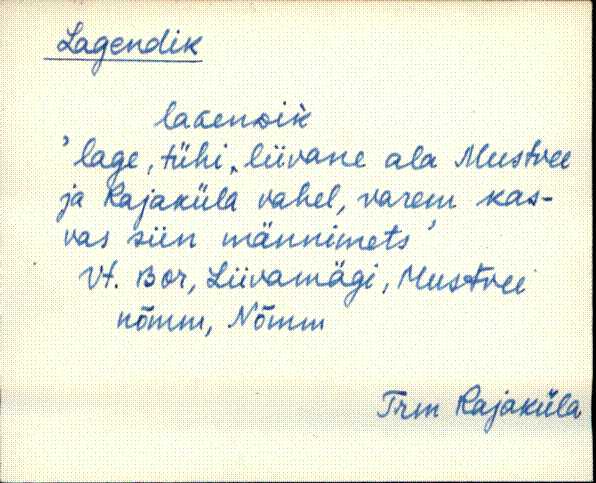 Lagendik
laGenDik
'lage, tühi, liivane ala Mustvee
ja Rajaküla vahel, varem kas-
vas siin männimets'
Vt. Bor, Liivamägi, Mustvee
nõmm, Nõmm
Trm Rajaküla